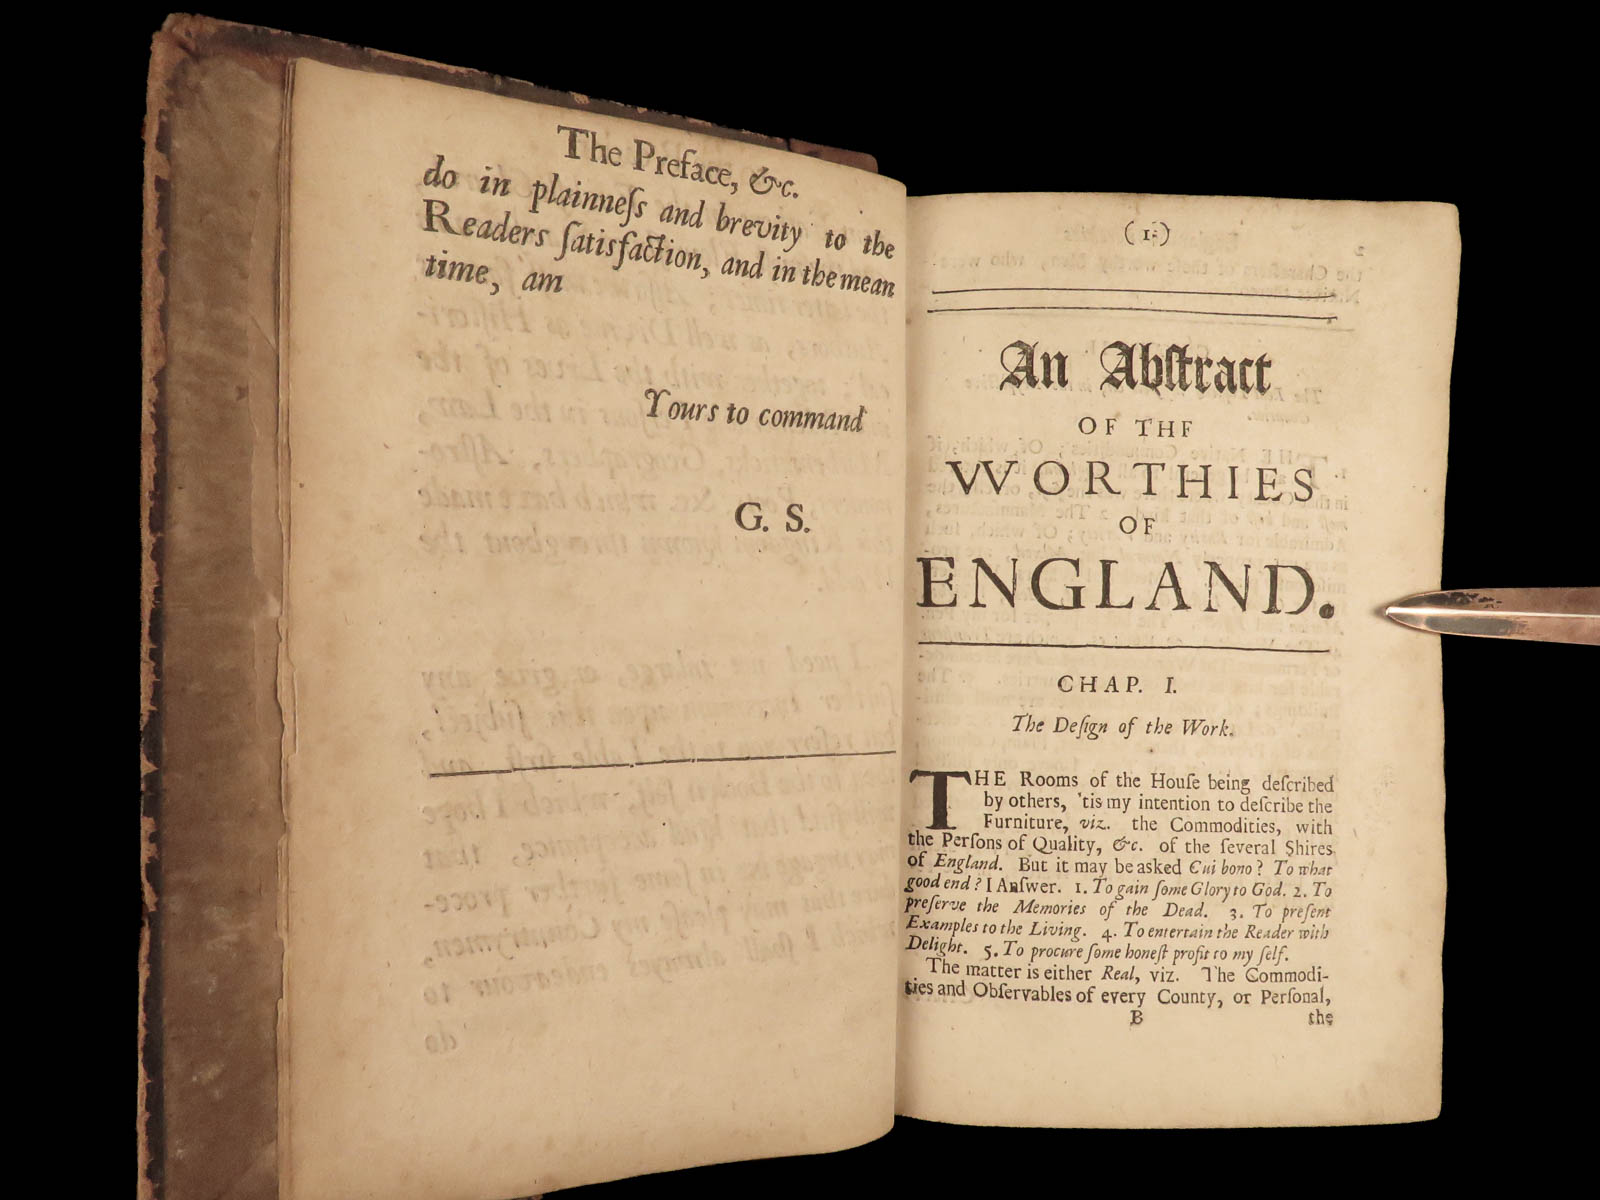 The Preface, &c.
do in plainneſs and brevity to the
Readers ſatisfaction, and in the mean
time, am
Yours to command
G. S.
(1.)
An Abſtract
OF THE
WORTHIES
OF
ENGLAND.
CHAP. I.
The Deſign of the Work.
THE Rooms of the Houſe being deſcribed
by others, 'tis my intention to deſcribe the
Furniture, viz. the Commodities, with
the Perſons of Quality, &c. of the ſeveral Shires
of England. But it may be asked Cui bono? To what
good end? I Anſwer. 1. To gain ſome Glory to God. 2. To
preſerve the Memories of the Dead. 3. To preſent
Examples to the Living. 4. To entertain the Reader with
Delight. 5. To procure ſome honeſt profit to my ſelf.
The matter is either Real, viz. The Commodi-
ties and Obſervables of every County, or Perſonal,
B the